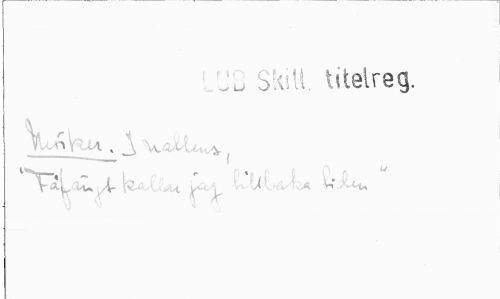 LUB Skill. titelreg.
Mörker. I nattens,
"Fåfängt kallar jag tillbaka tiden"